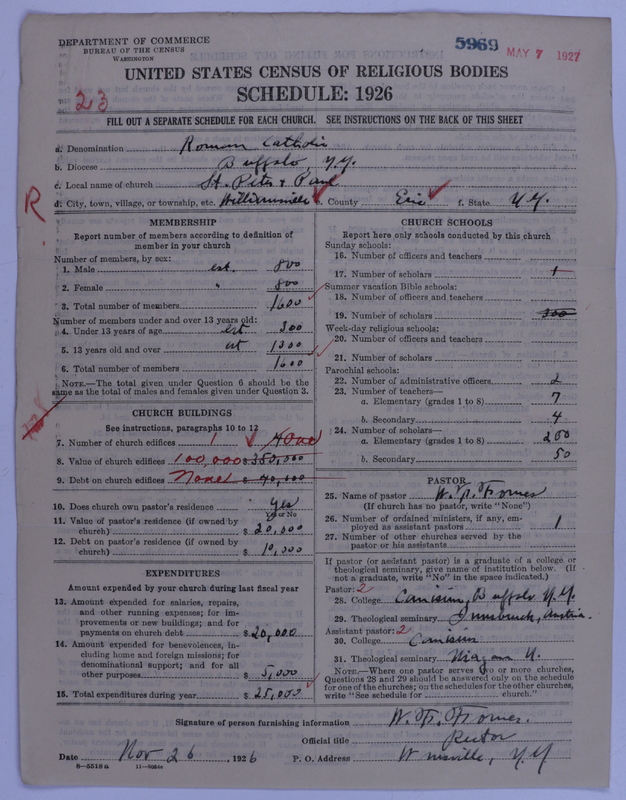 DEPARTMENT OF COMMERCE
BUREAU OF THE CENSUS
WASHINGTON
5969 MAY 7 1927
UNITED STATES CENSUS OF RELIGIOUS BODIES
SCHEDULE: 1926
23
FILL OUT A SEPARATE SCHEDULE FOR EACH CHURCH. SEE INSTRUCTIONS ON THE BACK OF THIS SHEET
a. Denomination Roman Catholic
b. Diocese Buffalo, N.Y.
c. Local name of church St. Peter & Paul
d. City, town, village, or township, etc. Williamsville County Erie f. State N.Y.
R
MEMBERSHIP
Report number of members according to definition of
member in your church
Number of members, by sex:
1. Male est. 800
2. Female " 800
3. Total number of members 1600
Number of members under and over 13 years old:
4. Under 13 years of age est 300
5. 13 years old and over est 1300
6. Total number of members 1600
NOTE.—The total given under Question 6 should be the
same as the total of males and females given under Question 3.
CHURCH BUILDINGS
See instructions, paragraphs 10 to 12
7. Number of church edifices 1 One
8. Value of church edifices 100,000 $ 350,000
9. Debt on church edifices None $ 40,000
10. Does church own pastor's residence? Yes
Yes or No
11. Value of pastor's residence (if owned by
church) $ 20,000
12. Debt on pastor's residence (if owned by
church) $ 10,000
EXPENDITURES
Amount expended by your church during last fiscal year
13. Amount expended for salaries, repairs,
and other running expenses; for im-
provements or new buildings; and for
payments on church debt $ 20,000
14. Amount expended for benevolences, in-
cluding home and foreign missions; for
denominational support; and for all
other purposes $ 5,000
15. Total expenditures during year $ 25,000
CHURCH SCHOOLS
Report here only schools conducted by this church
Sunday schools:
16. Number of officers and teachers
17. Number of scholars 1
Summer vacation Bible schools:
18. Number of officers and teachers
19. Number of scholars 300
Week-day religious schools:
20. Number of officers and teachers
21. Number of scholars
Parochial schools:
22. Number of administrative officers 2
23. Number of teachers—
a. Elementary (grades 1 to 8) 7
b. Secondary 4
24. Number of scholars—
a. Elementary (grades 1 to 8) 250
b. Secondary 50
PASTOR
25. Name of pastor W. P. Fornes
(If church has no pastor, write "None")
26. Number of ordained ministers, if any, em-
ployed as assistant pastors 1
27. Number of other churches served by the
pastor or his assistants
If pastor (or assistant pastor) is a graduate of a college or
theological seminary, give name of institution below. (If
not a graduate, write "No" in the space indicated.)
Pastor: 2
28. College Canisius, Buffalo N.Y.
29. Theological seminary Innsbruck, Austria.
Assistant pastor: 2
30. College Canisius
31. Theological seminary Niagara U.
NOTE.—Where one pastor serves two or more churches,
Questions 28 and 29 should be answered only on the schedule
for one of the churches; on the schedules for the other churches,
write "See schedule for church."
Signature of person furnishing information W. P. Fornes.
Official title Rector
Date Nov 26, 1926 P. O. Address Wmsville, N.Y.
8—5518a